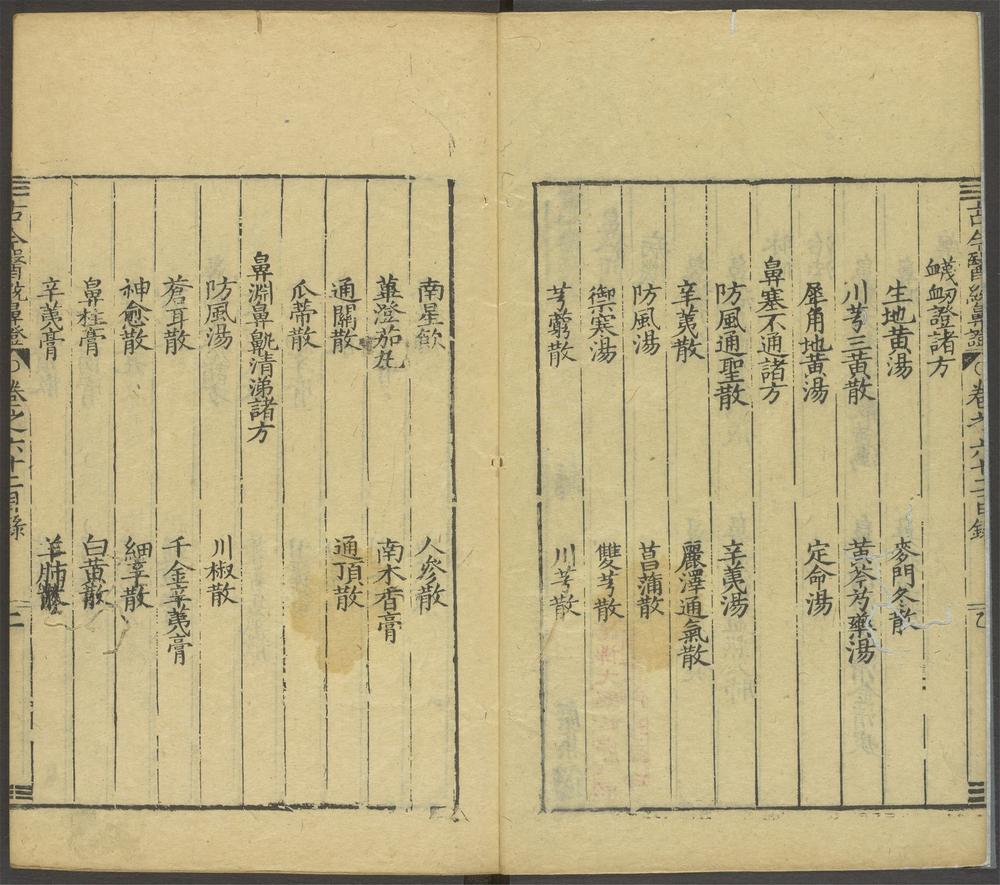 古今醫統鼻證 ○卷之六十二目錄 乙
衊衂證諸方
生地黃湯 麥門冬散
川芎三黃散 黃芩芍藥湯
犀角地黃湯 定命湯
鼻塞不通諸方
防風通聖散 辛荑湯
辛荑散 麗澤通氣散
防風湯 菖蒲散
禦寒湯 雙芎散
芎藭散 川芎散
南星飲 人參散
蓽澄茄丸 南木香膏
通關散 通頂散
瓜蒂散
鼻淵鼻鼽清涕諸方
防風湯 川椒散
蒼耳散 千金辛荑膏
神愈散 細辛散
鼻柱膏 白黃散
辛荑膏 羊肺散
古今醫統鼻證 ○卷之六十二目錄 二